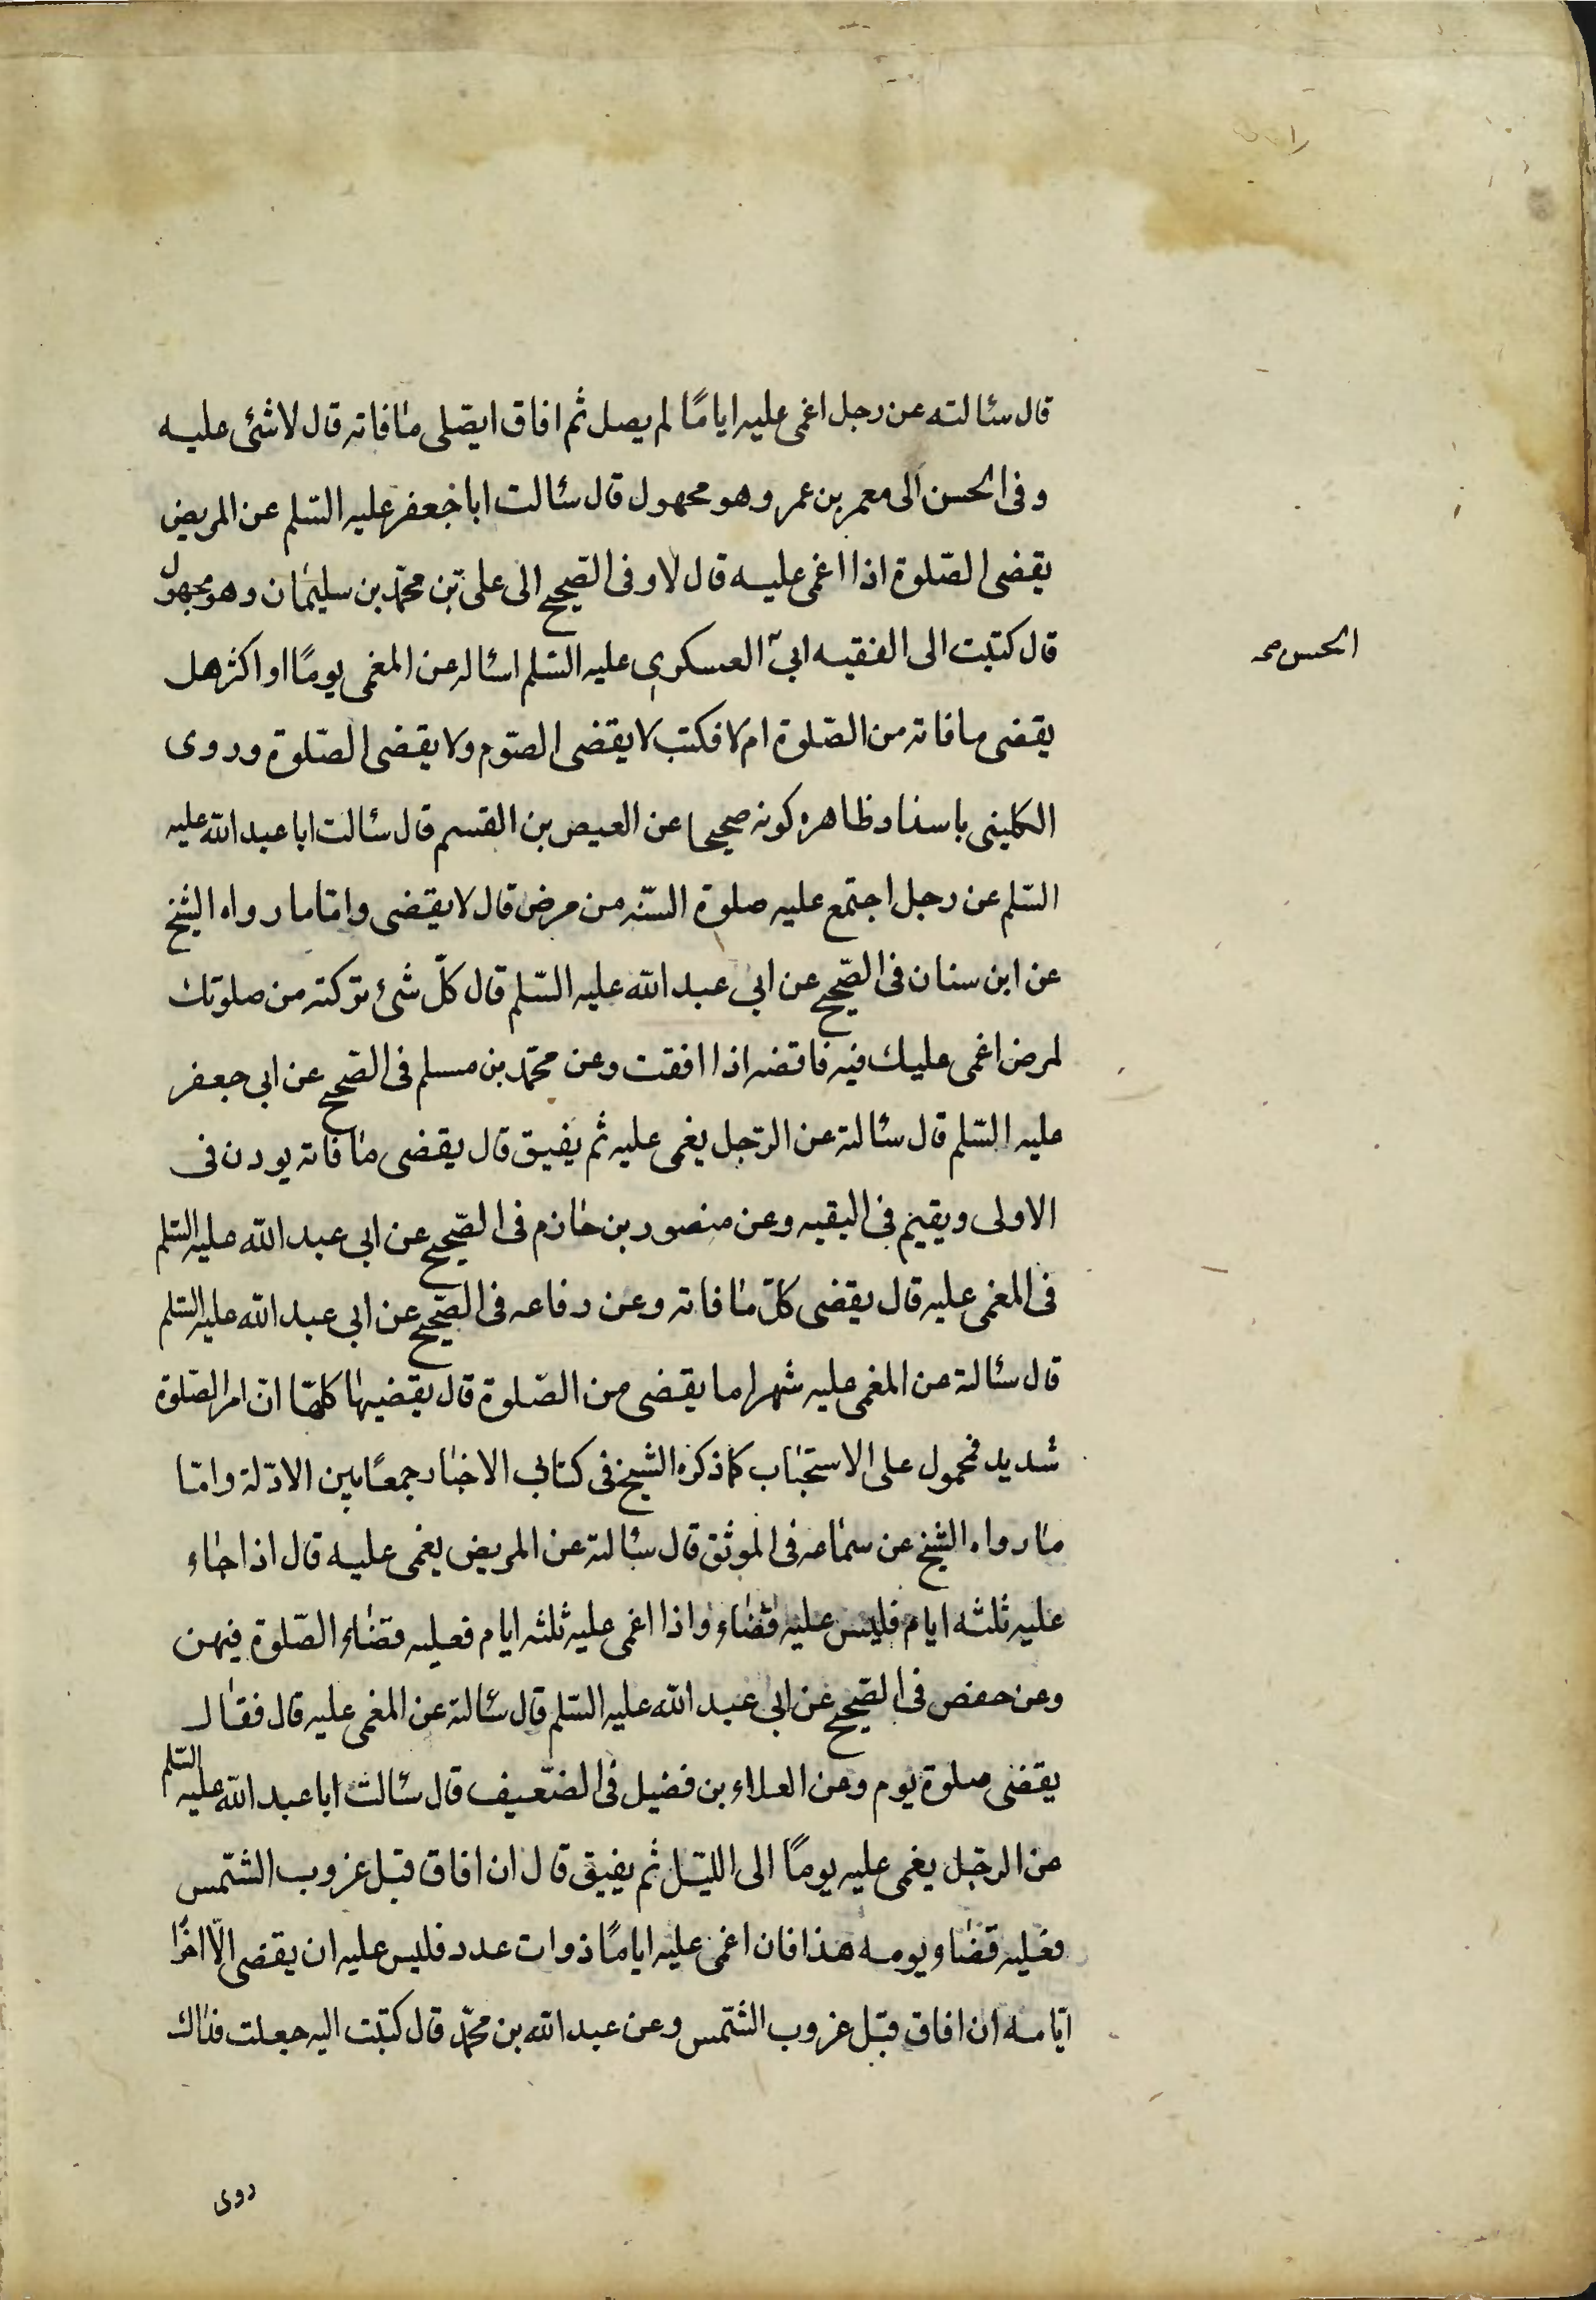 قال سئالته عن رجل اغمی علیه ایامًا لم یصل ثم افاق ایصّلی مافاته قال لا شئی علیه
و فی الحسن الی معمر بن عمر و هو مجهول قال سئالت ابا جعفر علیه السّلم عن المریض
یقضی الصّلوة اذا اغمی علیه قال لا و فی الصّحیح الی علی بن محمّد بن سلیمان و هو مجهول
قال کتبت الی الفقیه ابی العسکری علیه السّلم اسئاله عن المغمی یومًا او اکثر هل
الحسن صح
یقضی مافاته من الصّلوة ام لا فکتب لا یقضی الصّوم ولا یقضی الصّلوة وروی
الکلینی باسناد ظاهره کونه صحیحا عن العیص بن القسم قال سئالت ابا عبد الله علیه
السّلم عن رجل اجتمع علیه صلوة السّنه من مرض قال لا یقضی وامّا ما رواه الشیخ
عن ابن سنان فی الصّحیح عن ابی عبد الله علیه السّلم قال کلّ شیء ترکته من صلوتك
لمرض اغمی علیك فیه فاقضه اذا افقت وعن محمّد بن مسلم فی الصّحیح عن ابی جعفر
علیه السّلم قال سئالته عن الرّجل یغمی علیه ثم یفیق قال یقضی مافاته یوذن فی
الاولی ویقیم فی البقیه وعن منصور بن حازم فی الصّحیح عن ابی عبد الله علیه السّلم
فی المغمی علیه قال یقضی کلّ مافاته وعن رفاعه فی الصّحیح عن ابی عبد الله علیه السّلم
قال سئالته عن المغمی علیه شهرا ما یقضی من الصّلوة قال یقضیها کلّها انّ امر الصّلوة
شدید فمحمول علی الاستحباب کما ذکره الشیخ فی کتابی الاخبار جمعًا بین الادّلة وامّا
ما رواه الشیخ عن سماعه فی الموثق قال سئالته عن المریض یغمی علیه قال اذا جاء
علیه ثلثه ایام فلیس علیه قضاء واذا اغمی علیه ثلثه ایام فعلیه قضاء الصّلوة فیهن
وعن حفص فی الصّحیح عن ابی عبد الله علیه السّلم قال سئالته عن المغمی علیه قال فقال
یقضی صلوة یوم وعن العلاء بن فضیل فی الضّعیف قال سئالت ابا عبد الله علیه السّلم
عن الرجّل یغمی علیه یومًا الی اللّیل ثم یفیق قال ان افاق قبل غروب الشّمس
فعلیه قضاء یومه هذا فان اغمی علیه ایامًا ذوات عدد فلیس علیه ان یقضی الّا اخرّ
ایّامه ان افاق قبل غروب الشّمس وعن عبد الله بن محمّد قال کتبت الیه جعلت فداك
روی